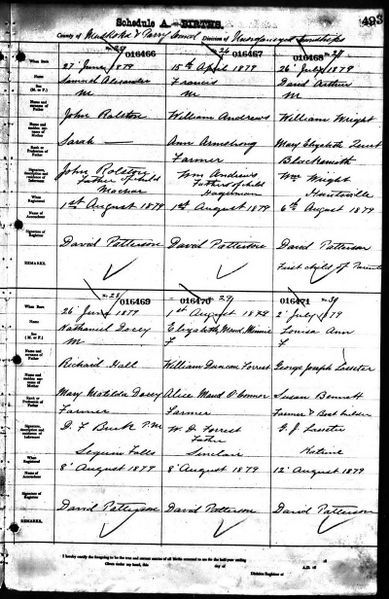 493
Schedule A.—BIRTHS.
County of Muskoka & Parry Sound Division of Unorganized Townships
016466 016467 016468
When Born 27 June 1879 15th April 1879 26 July 1879
Name Samuel Alexander Francis David Arthur
Sex (M. or F.) M M M
Name and surname of Father John Ralston William Andrews William Wright
Name and maiden surname of Mother Sarah — Ann Armstrong Mary Elizabeth
Rank or Profession of Father Farmer Blacksmith
Signature, description and residence of Informant John Ralston Wm Andrews Wm Wright
Father of child Father of child Huntsville
Machar Hagerman
When Registered 1st August 1879 1st August 1879 6th August 1879
Signature of Registrar David Patterson David Patterson David Patterson
REMARKS. First child of Parents
016469 016470 016471
When Born 26 June 1879 1st August 1879 2 July 1879
Name Nathaniel Dorey Elizabeth Maud Minnie Louisa Ann
Sex (M. or F.) M F F
Name and surname of Father Richard Hall William Duncan Forrest George Joseph
Name and maiden surname of Mother Mary Matilda Dorey Alice Maud O'Connor Susan Bennett
Rank or Profession of Father Farmer Farmer Farmer & Boat builder
Signature, description and residence of Informant D. F. Burk P.M W. D. Forrest G. J.
Father
Seguin Falls Sinclair Katrine
8' August 1879 8' August 1879 12' August 1879
Signature of Registrar David Patterson David Patterson David Patterson
REMARKS.
I hereby certify the foregoing to be the true and correct entries of all Births returned to me for the half-year ending
Given under my hand, this day of A.D. 18
Division Registrar of